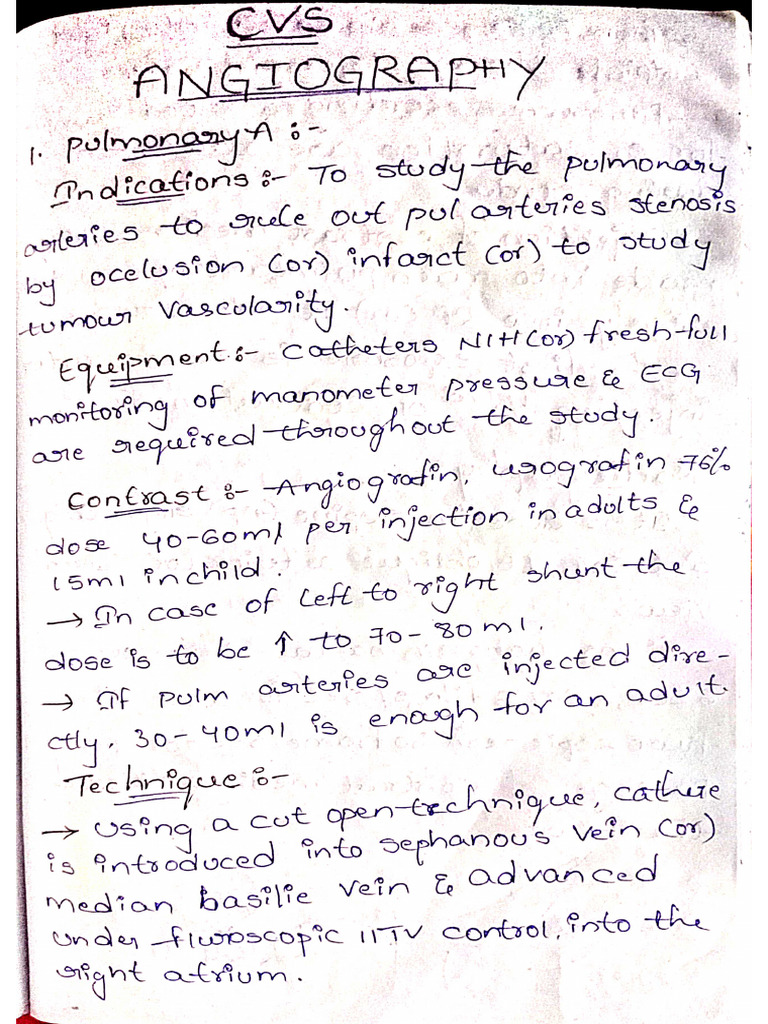 CVS
ANGIOGRAPHY
1. Pulmonary A :-
Indications :- To study the pulmonary
arteries to rule out pul arteries stenosis
by ocelusion (or) infarct (or) to study
tumour vascularity.
Equipment :- Catheters NIH (or) fresh-full
monitoring of manometer pressure & ECG
are required throughout the study.
Contrast :- Angiografin, urografin 76%
dose 40-60ml per injection in adults &
15ml in child.
→ In case of left to right shunt the
dose is to be ↑ to 70-80ml.
→ If pulm arteries are injected dire-
ctly, 30-40ml is enough for an adult.
Technique :-
→ Using a cut open-technique, cathere
is introduced into sephanous vein (or)
median basilie vein & advanced
under fluroscopic IITV control, into the
right atrium.